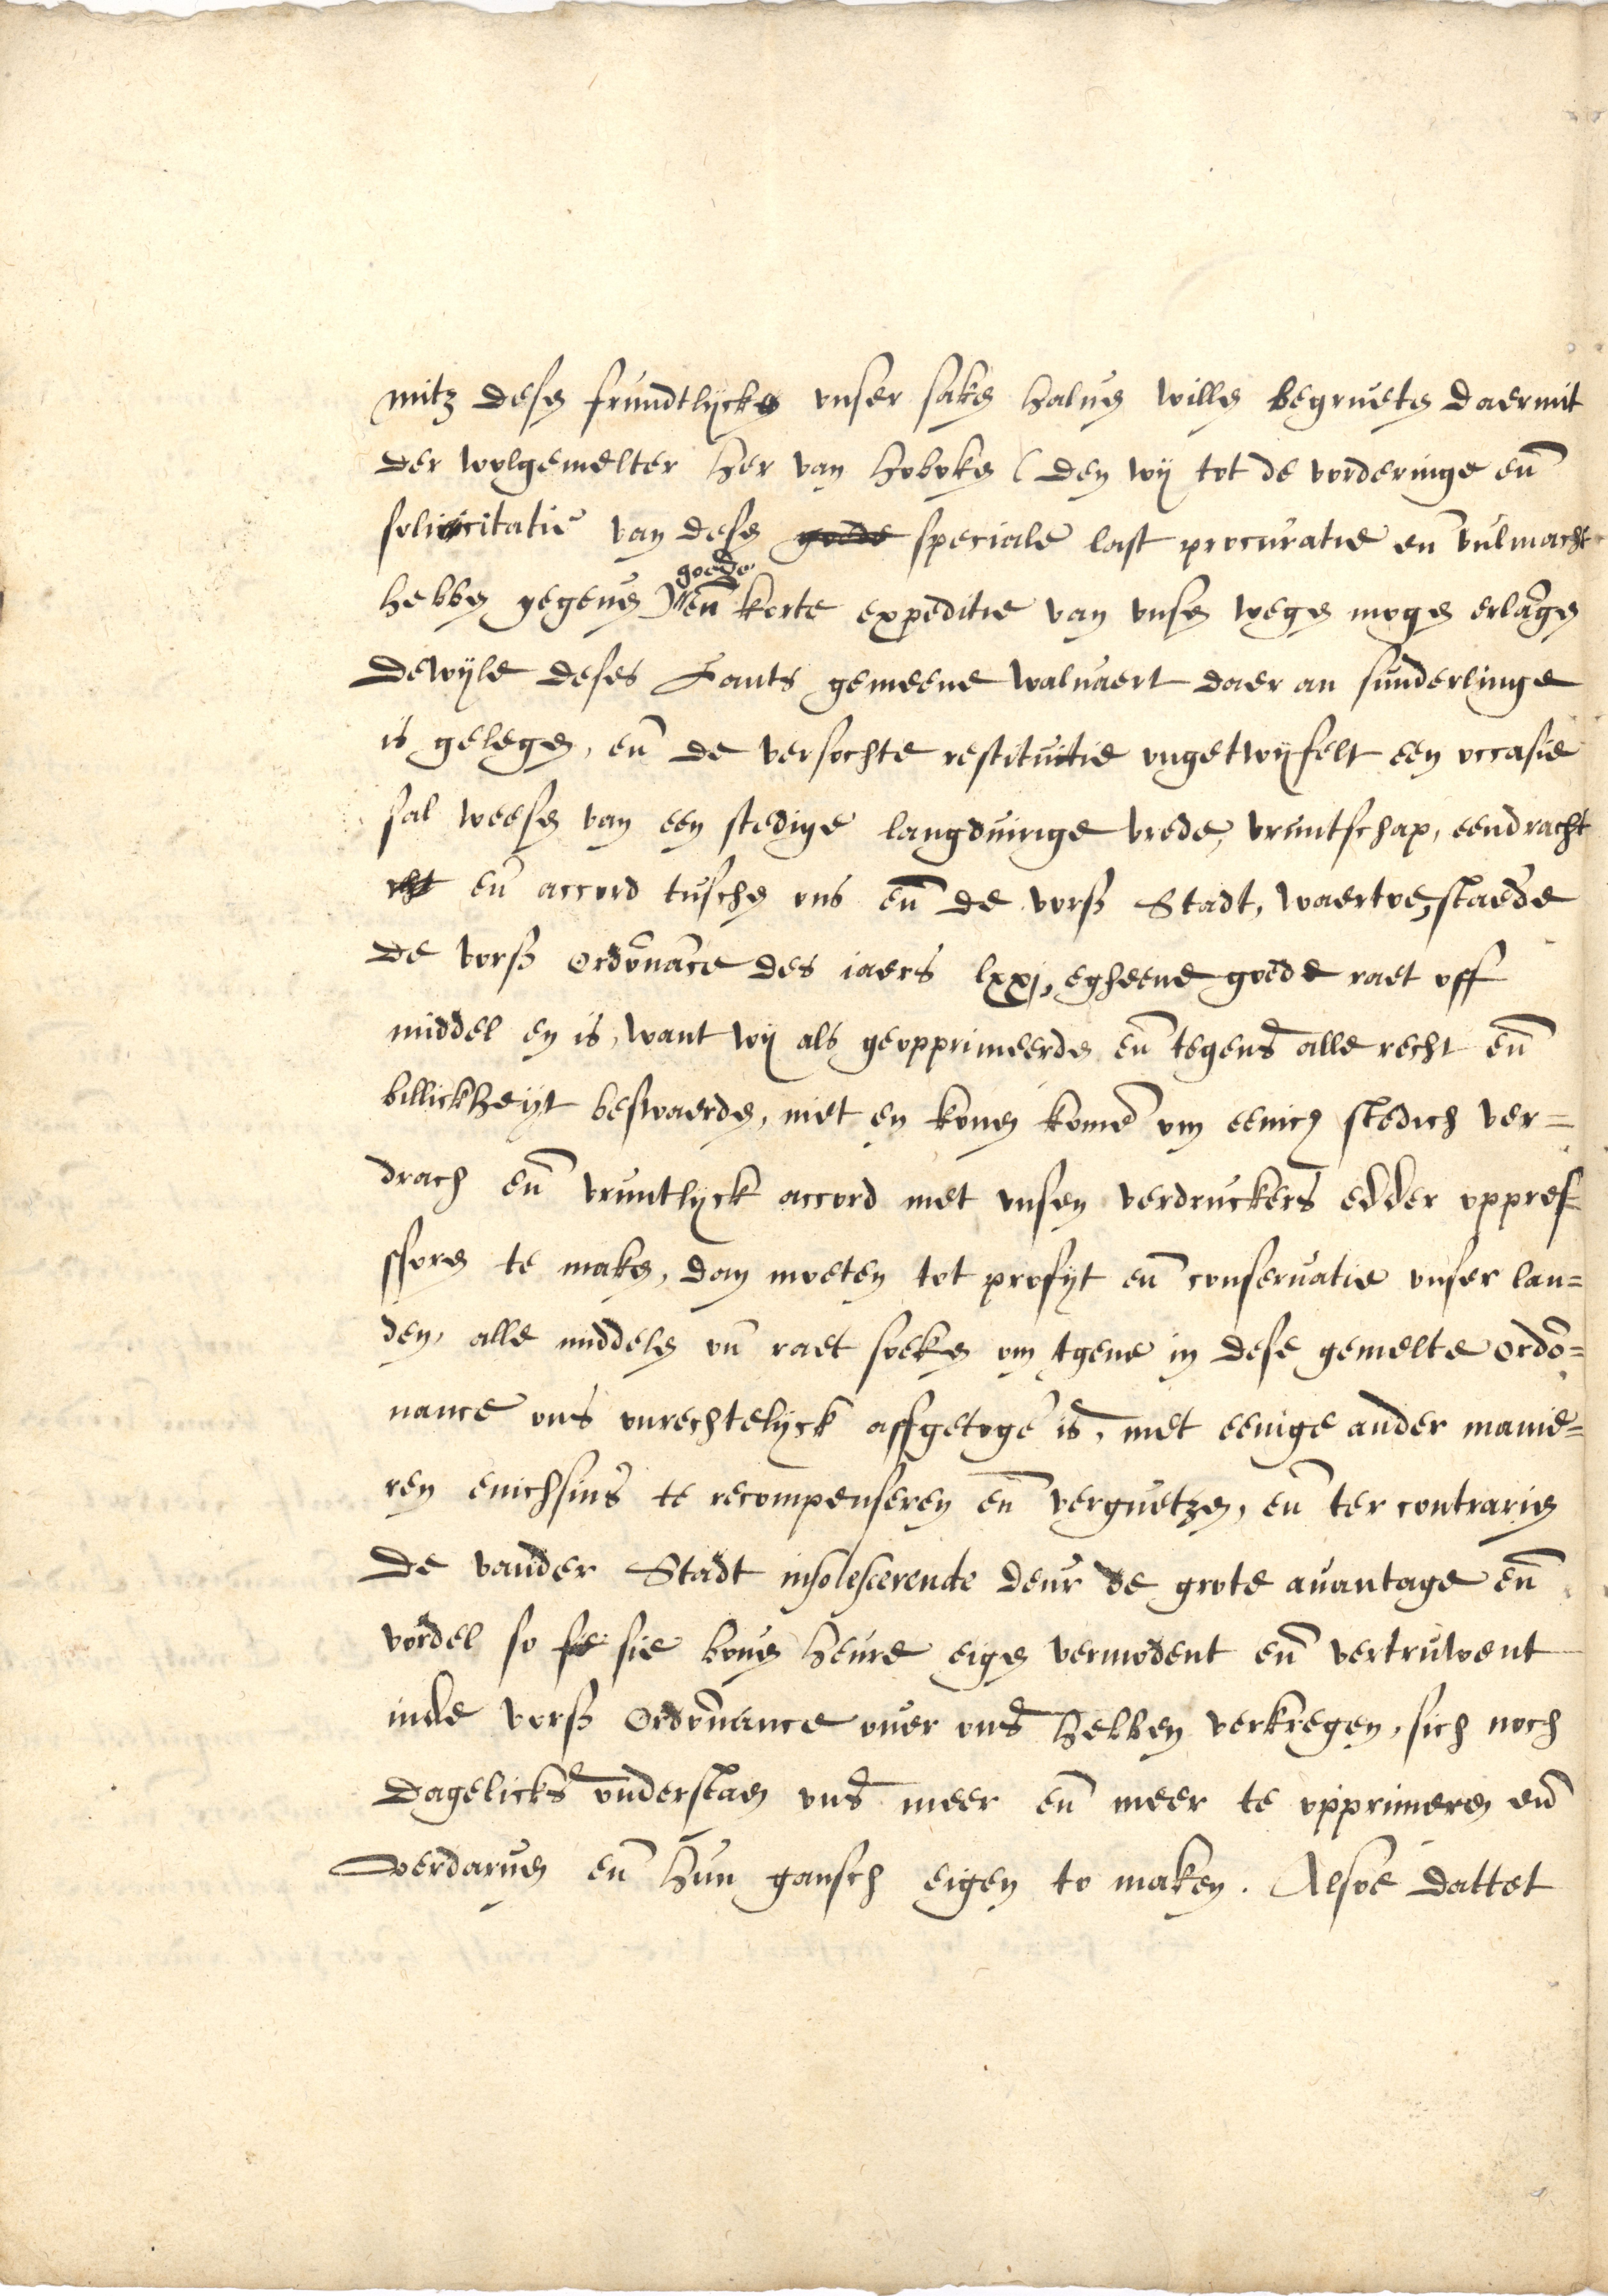 mitz desen frundtlycken unser saken halven willen begrueten daermit
der wolgemelter her van hoboken (den wij tot de vorderinge eñ
solicitatie van desen goede speciale last procuratie eñ vulmacht
hebben gegeven) goede eñ korte expeditie van unsen wegen mogen erlãgen
dewyle deses Lants gemeene walvaert daer an sunderlinge
is gelegen, eñ de versochte restitutie ungetwyfelt een occasie
sal weesen van een stedige langduirige vrede, vruntschap, eendracht
eñ accord tuschen ons eñ de vorß Stadt, waertoe, staede
de vorß Ordõnãce des iaers lxxj, egheene goede raet off
middel en is, want wij als geopprimeerden eñ tegens alle recht eñ
billickheyt beswaerden, niet en konen komē om eenich stedich ver=
drach eñ vruntlyck accord met unsen verdruckers edder oppres-
ssoren te maken, dan moeten tot profyt eñ conservatie unser lan=
den, alle middelen uñ raet soeken om tgene in dese gemelte ordõ=
nance ons unrechtelyck affgetogē is, met eenige ander manie=
ren enichsins te recompenseren eñ verguetzen, eñ ter contrarien
de vander Stadt insolescerende deur de grote avantage eñ
vordel so sie sie boven heure eigen vermodent eñ vertruwent
inde vorß Ordõnance over uns hebben verkregen, sich noch
dagelicks understaen uns meer eñ meer te opprimeren eñ
verdarven eñ hun gansch eigen to maken. Alsoe dattet